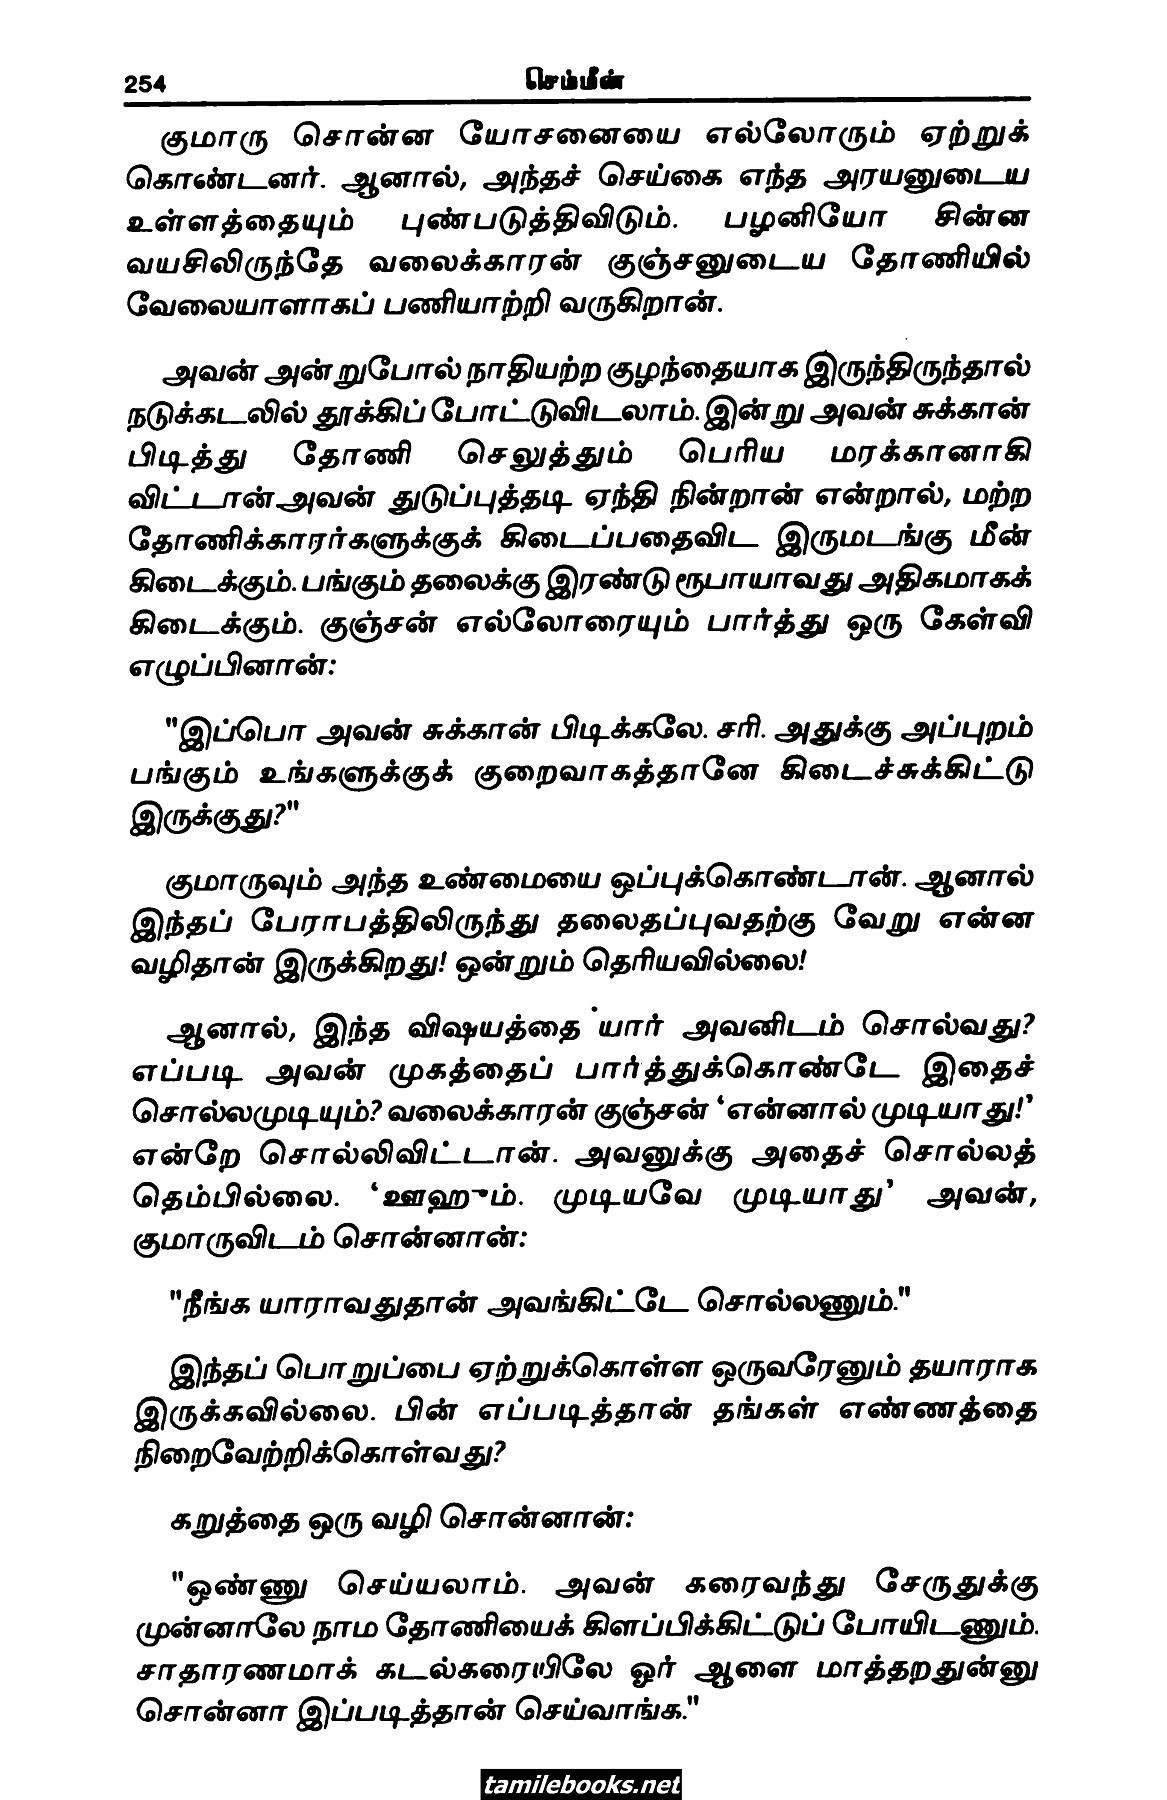 254 செம்மீன்
குமாரு சொன்ன யோசனையை எல்லோரும் ஏற்றுக்
கொண்டனர். ஆனால், அந்தச் செய்கை எந்த அரயனுடைய
உள்ளத்தையும் புண்படுத்திவிடும். பழனியோ சின்ன
வயசிலிருந்தே வலைக்காரன் குஞ்சனுடைய தோணியில்
வேலையாளாகப் பணியாற்றி வருகிறான்.
அவன் அன்றுபோல் நாதியற்ற குழந்தையாக இருந்திருந்தால்
நடுக்கடலில் தூக்கிப் போட்டுவிடலாம். இன்று அவன் சுக்கான்
பிடித்து தோணி செலுத்தும் பெரிய மரக்கானாகி
விட்டான்அவன் துடுப்புத்தடி ஏந்தி நின்றான் என்றால், மற்ற
தோணிக்காரர்களுக்குக் கிடைப்பதைவிட இருமடங்கு மீன்
கிடைக்கும். பங்கும் தலைக்கு இரண்டு ரூபாயாவது அதிகமாகக்
கிடைக்கும். குஞ்சன் எல்லோரையும் பார்த்து ஒரு கேள்வி
எழுப்பினான்:
"இப்பொ அவன் சுக்கான் பிடிக்கலே. சரி. அதுக்கு அப்புறம்
பங்கும் உங்களுக்குக் குறைவாகத்தானே கிடைச்சுக்கிட்டு
இருக்குது?"
குமாருவும் அந்த உண்மையை ஒப்புக்கொண்டான். ஆனால்
இந்தப் பேராபத்திலிருந்து தலைதப்புவதற்கு வேறு என்ன
வழிதான் இருக்கிறது! ஒன்றும் தெரியவில்லை!
ஆனால், இந்த விஷயத்தை யார் அவனிடம் சொல்வது?
எப்படி அவன் முகத்தைப் பார்த்துக்கொண்டே இதைச்
சொல்லமுடியும்? வலைக்காரன் குஞ்சன் ‘என்னால் முடியாது!’
என்றே சொல்லிவிட்டான். அவனுக்கு அதைச் சொல்லத்
தெம்பில்லை. ‘ஊஹும். முடியவே முடியாது’ அவன்,
குமாருவிடம் சொன்னான்:
"நீங்க யாராவதுதான் அவங்கிட்டே சொல்லணும்."
இந்தப் பொறுப்பை ஏற்றுக்கொள்ள ஒருவரேனும் தயாராக
இருக்கவில்லை. பின் எப்படித்தான் தங்கள் எண்ணத்தை
நிறைவேற்றிக்கொள்வது?
கறுத்தை ஒரு வழி சொன்னான்:
"ஒண்ணு செய்யலாம். அவன் கரைவந்து சேருதுக்கு
முன்னாலே நாம தோணியைக் கிளப்பிக்கிட்டுப் போயிடணும்.
சாதாரணமாக் கடல்கரையிலே ஓர் ஆளை மாத்தறதுன்னு
சொன்னா இப்படித்தான் செய்வாங்க."
tamilebooks.net